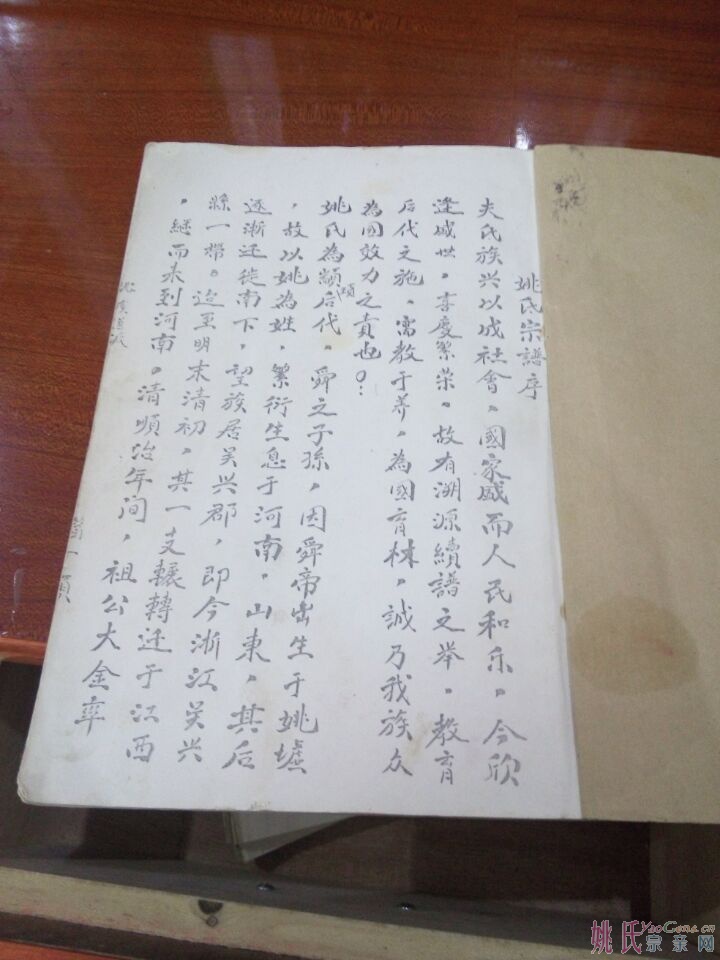 姚氏宗譜序
夫氏族兴以成社會，國家盛而人民和乐，今欣
逢盛世，喜慶繁荣。故有溯源續譜之举，教育
后代之施，寓教于养，為國育林，誠乃我族众
為国效力之責也。：
姚氏為顓頊后代，舜之子孫，因舜帝出生于姚墟
，故以姚為姓，繁衍生息于河南，山東，其后
逐漸迁徙南下，望族居吴兴郡，即今浙江吴兴
縣一帶。迨至明末清初，其一支輾轉迁于江西
，継而来到河南。清順治年间，祖公大金率
第一頁
姚氏 YaoGens.cn
宗亲网